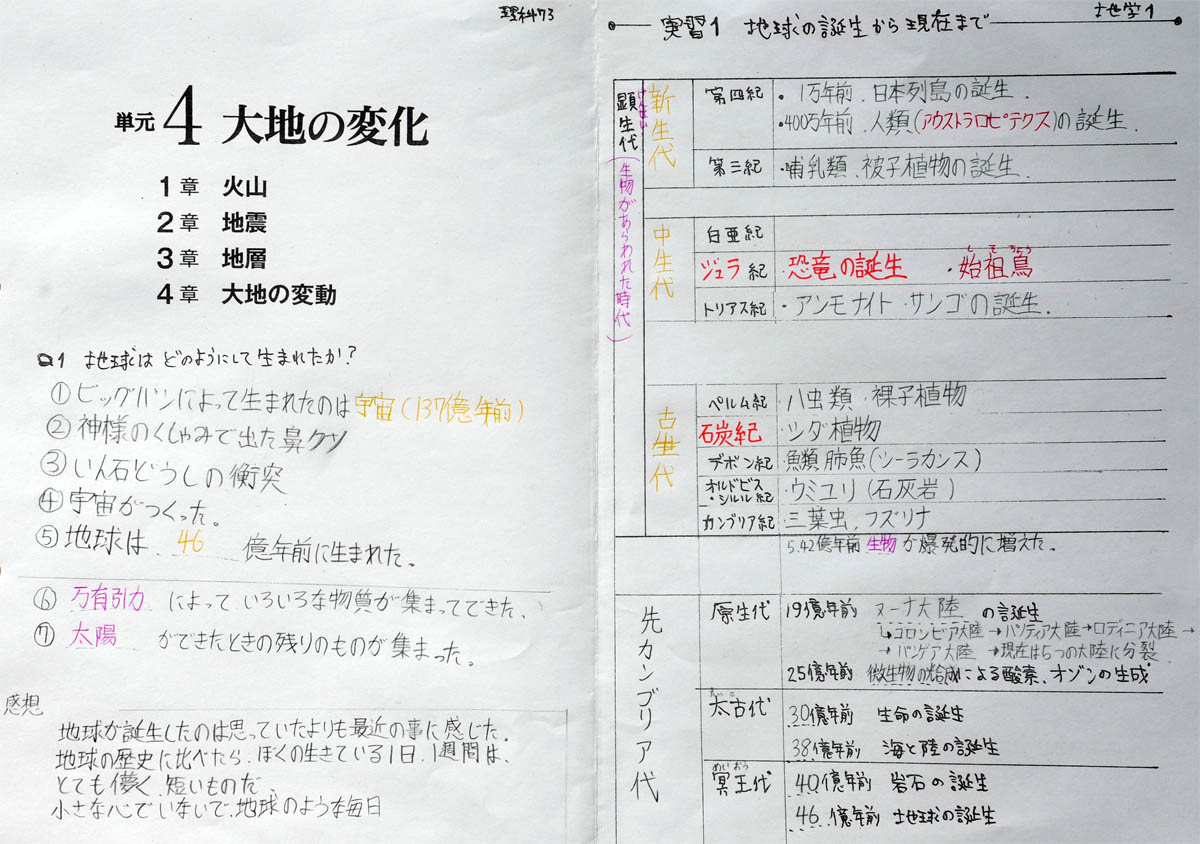 理科73
単元4 大地の変化
1章 火山
2章 地震
3章 地層
4章 大地の変動
Q1 地球はどのようにして生まれたか?
①ビッグバンによって生まれたのは宇宙(137億年前)
②神様のくしゃみで出た鼻クソ
③いん石どうしの衝突
④宇宙がつくった。
⑤地球は 46 億年前に生まれた。
⑥万有引力 によって いろいろな物質が集まってできた。
⑦太陽 ができたときの残りのものが集まった。
感想
地球が誕生したのは思っていたよりも最近の事に感じた。
地球の歴史に比べたら、ぼくの生きている1日、1週間は、
とても儚く、短いものだ、
小さな心でいないで、地球のような毎日
地学1
実習1 地球の誕生から現在まで
顕生代
けんせい
(生物があらわれた時代)
新生代
第四紀 ・1万年前、日本列島の誕生.
・400万年前、人類(アウストラロピテクス)の誕生.
第三紀 ・哺乳類、被子植物の誕生.
中生代
白亜紀
ジュラ紀 ・恐竜の誕生 ・始祖鳥
しそちょう
トリアス紀 ・アンモナイト・サンゴの誕生.
古生代
ペルム紀 ・ハ虫類・裸子植物
石炭紀 ・シダ植物
デボン紀 ・魚類 肺魚(シーラカンス)
オルドビス・シルル紀 ・ウミユリ(石灰岩)
カンブリア紀 ・三葉虫、フズリナ
5.42億年前 生物が爆発的に増えた。
先カンブリア代
原生代 19億年前 ヌーナ大陸 の誕生
↳コロンビア大陸→パノティア大陸→ロディニア大陸→
→パンゲア大陸→現在は5つの大陸に分裂
25億年前 微生物の光合成による酸素、オゾンの生成
たいこ
太古代 30億年前 生命の誕生
38億年前 海と陸の誕生
めいおう
冥王代 40億年前 岩石の誕生
46億年前 地球の誕生